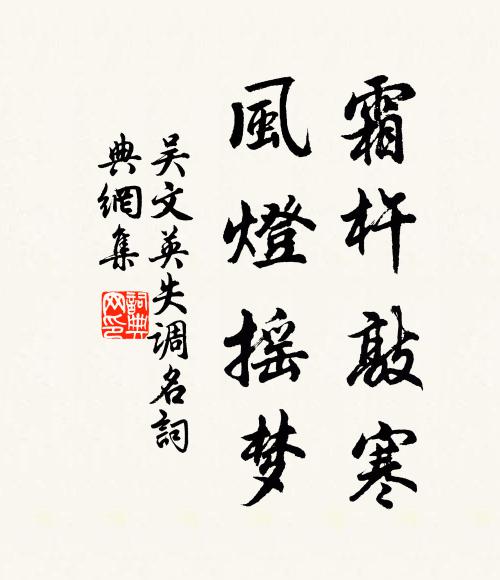 霜杵敲寒
風燈摇梦
吴文英失调名詞
典網集
詞典网印